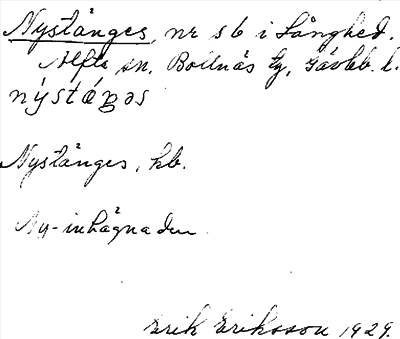 Nystånges, nr 56 i Långhed.
Alfta sn. Bollnäs tg, Gävleb. l.
Nystånges, kb.
Ny-inhägnaden
Erik Eriksson 1929.